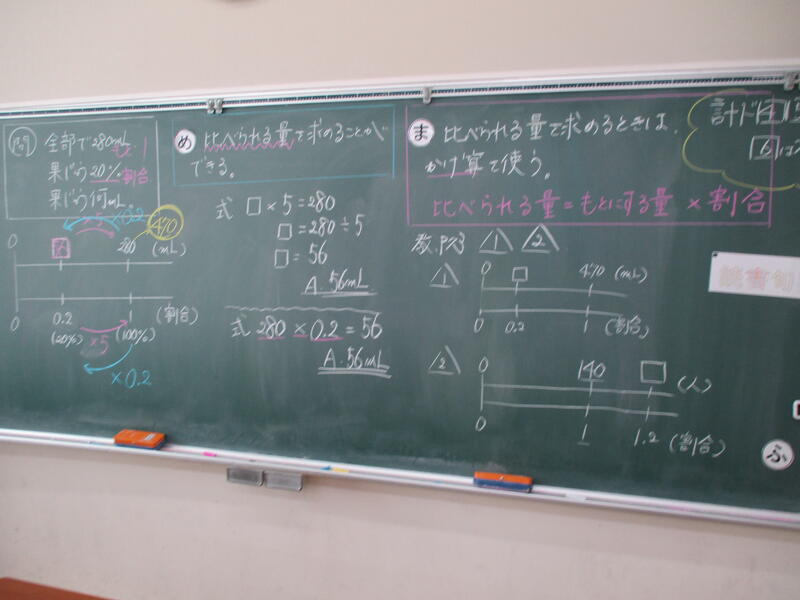 全部で280mL
もと 1
果じゅう20% 割合
果じゅう何mL
め 比べられる量を求めることが
できる。
ま 比べられる量を求めるときは、
かけ算を使う。
比べられる量=もとにする量×割合
×0.2
×5
470
0 280 (mL)
0 0.2 1 (割合)
(20%) ×5 (100%)
×0.2
式 □×5=280
□=280÷5
□=56
A. 56mL
式 280×0.2=56
A. 56mL
教.P.73 1 2
1 0 □ 470 (mL)
0 0.2 1 (割合)
2 0 140 □ (人)
0 1 1.2 (割合)
計ド
6
読書旬
ふ